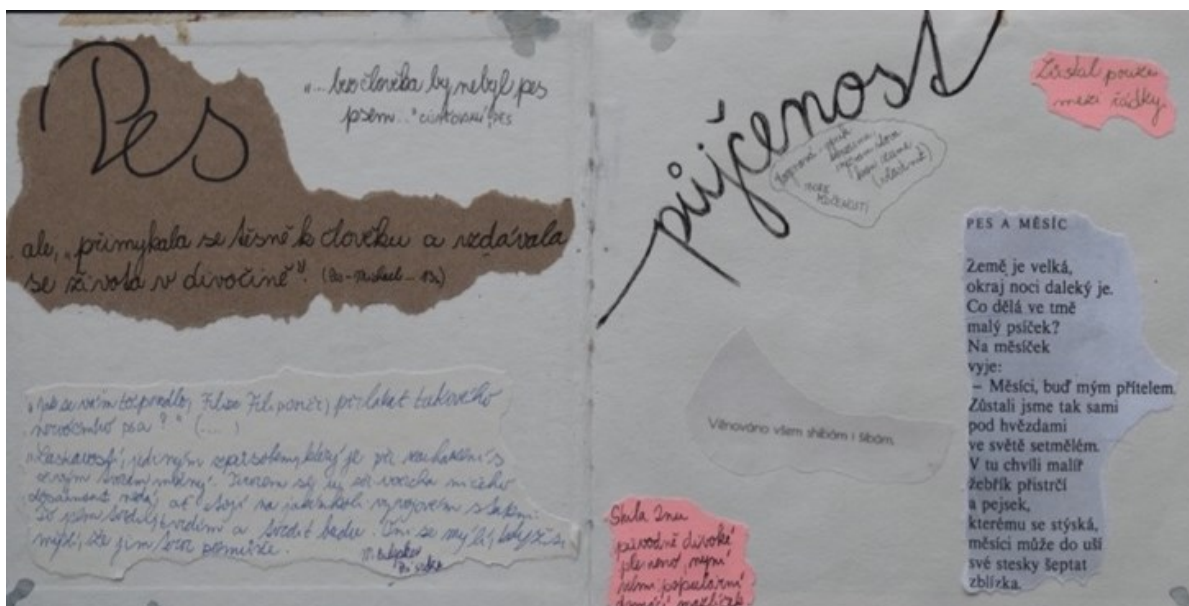 Pes
"... bez člověka by nebyl pes
psem..."
ale, "přimykala se těsně k člověku a vzdávala
se života v divočině".
"Jak se vám to podařilo, Filipe Filipoviči, přilákat takového
nervózního psa?" (.....)
"Laskavostí, jediným způsobem, který je při zacházení s
živým tvorem možný. Terorem se u
ať stojí na jakémkoli vývojovém stupni.
To jsem tvrdil, tvrdím a tvrdit budu. Oni se mýlí, když si
myslí, že jim teror pomůže.
půjčenost
Zůstal pouze
mezi řádky.
PES A MĚSÍC
Země je velká,
okraj noci daleký je.
Co dělá ve tmě
malý psíček?
Na měsíček
vyje:
– Měsíci, buď mým přítelem.
Zůstali jsme tak sami
pod hvězdami
ve světě setmělém.
V tu chvíli malíř
žebřík přistrčí
a pejsek,
kterému se stýská,
měsíci může do uší
své stesky šeptat
zblízka.
Věnováno všem shibám i šibám.
Shiba Inu
původně divoké
plemeno, nyní
velmi populární
domácí mazlíček